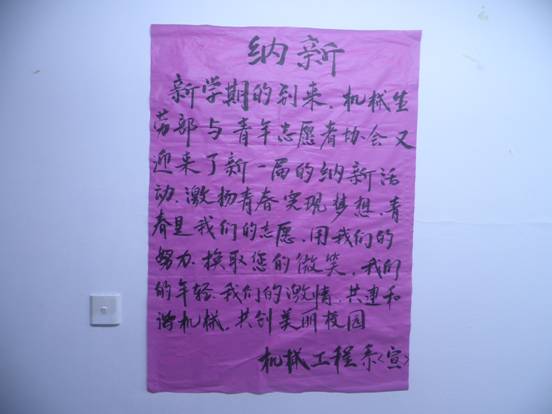 纳新
新学期的到来,机械生
劳部与青年志愿者协会又
迎来了新一届的纳新活
动,激扬青春实现梦想,青
春是我们的志愿,用我们的
努力,换取您的微笑,我们
的年轻,我们的激情,共建和
谐机械,共创美丽校园
机械工程系<宣>